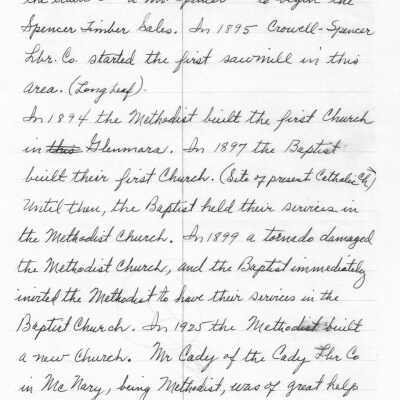 Spencer Timber Sales. In 1895 Crowell-Spencer
Lbr. Co. started the first sawmill in this
area. (Long Leaf).
In 1894 the Methodist built the first Church
in this Glenmora. In 1897 the Baptist
built their first Church. (Site of present Catholic Ch.)
Until then, the Baptist held their services in
the Methodist Church. In 1899 a tornado damaged
the Methodist Church, and the Baptist immediately
invited the Methodist to have their services in the
Baptist Church. In 1925 the Methodist built
a new Church. Mr Cady of the Cady Lbr Co
in Mc Nary, being Methodist, was of great help